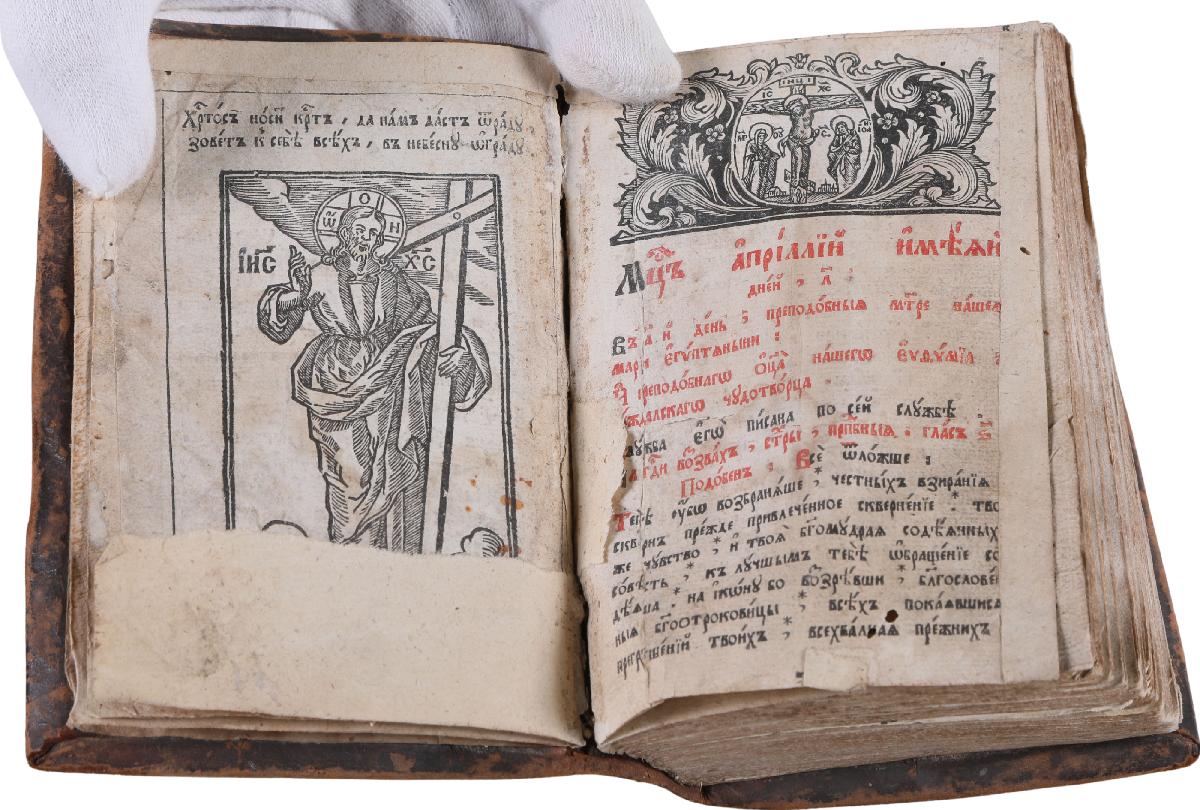 Хрⷭ҇то́съ но́ситъ крⷭ҇тъ, да на́мъ да́стъ ѿра́дꙋ,
зове́тъ к̾ себѣ̀ всѣ́хъ, въ небе́снꙋ ѡ҆гра́дꙋ.
ѽ О Н
І҆И҃С Х҃С
ІНЦІ
ІС ХС
Мцⷭ҇ъ а҆прі́ллїй и҆мѣ́ѧй
дне́й, л҃.
Въ а҃ й де́нь; преподо́бныѧ мт҃ре на́шеѧ
марі́ и є҆гѵ́птѧныни:
преподо́бнагѡ ѻ҆ц҃а̀ на́шегѡ є҆ѵѳѵ́мїѧ
сꙋ́ждалскагѡ чꙋдотво́рца.
слꙋ́жба є҆гѡ̀ пи́сана по се́й слꙋ́жбѣ
На гдⷭ҇и воззва́хъ, стⷯры̀, прпⷣбныѧ. гла́съ
Подо́бенъ, Всѐ ѿло́жше:
Тебѣ̀ ᲂу҆́бѡ возбранѧ́ше, * че́стныхъ взира́нїѧ
скве́рнъ пре́жде привлече́нное скверне́нїе. * тво
же чꙋ́вство, * и҆ твоѧ̀ бг҃омꙋ́драѧ содѣ́ѧнныхъ
со́вѣсть, * къ лꙋ́чшымъ тебѣ̀ ѡ҆браще́нїе со
дѣ́ѧша. * на і҆кѡ́нꙋ бо воззрѣ́вши, бл҃гослове́н
ныѧ бг҃оотрокови́цы, * всѣ́хъ, пока́ѧвшисѧ
прегрѣше́нїй твои́хъ, * всехва́лнаѧ пре́жнихъ